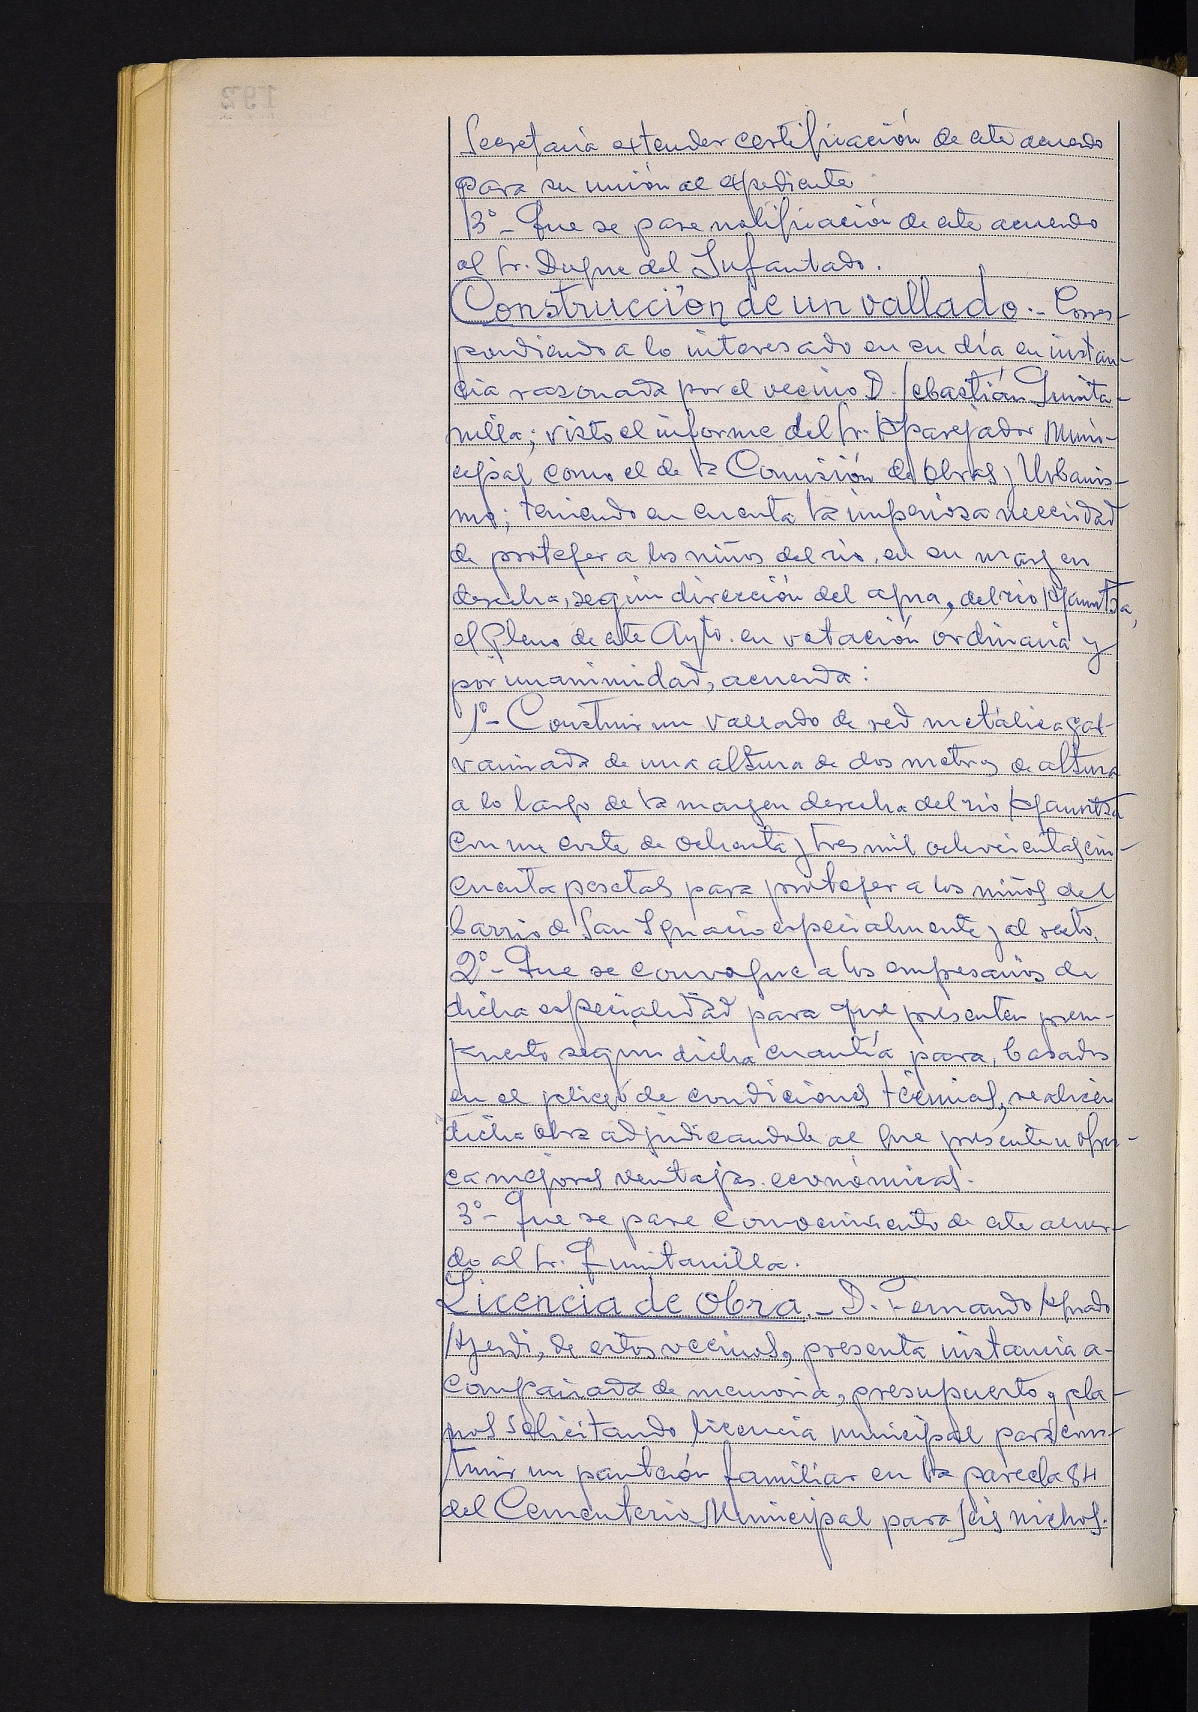 Secretaría extender certificación de este acuerdo
para su unión al expediente.
3º- Que se pase notificación de este acuerdo
al Sr. Duque del Infantado.
Construcción de un vallado.- Corres-
pondiendo a lo interesado en su día en instan-
cia razonada por el vecino D. Sebastián Quinta-
nilla; visto el informe del Sr. Aparejador Muni-
cipal como el de la Comisión de Obras y Urbanis-
mo; teniendo en cuenta la imperiosa necesidad
de proteger a los niños del rio, en su margen
derecha, según dirección del agua, del rio Araunt­za,
el Pleno de este Ayto. en votación ordinaria y
por unanimidad, acuerda:
1º- Construir un vallado de red metálica gal-
vanizada de una altura de dos metros de altura
a lo largo de la margen derecha del rio
con un coste de ochenta y tres mil ochocientas cin-
cuenta pesetas para proteger a los niños del
barrio de San Ignacio especialmente y al resto.
2º- Que se convoque a los empresarios de
dicha especialidad para que presenten presu-
puesto segun dicha cuantía para, basados
en el pliego de condiciones técnicas, realicen
dicha obra adjudicandole al que presente u ofrez-
ca mejores ventajas económicas.
3º- Que se pase conocimiento de este acuer-
do al Sr. Quintanilla.
Licencia de obra.- D. Fernando Aguado
de estos vecinos, presenta instancia a-
compañada de memoria, presupuesto y pla-
nos solicitando licencia municipal para cons-
truir un panteón familiar en la parcela 84
del Cementerio Municipal para seis nichos.